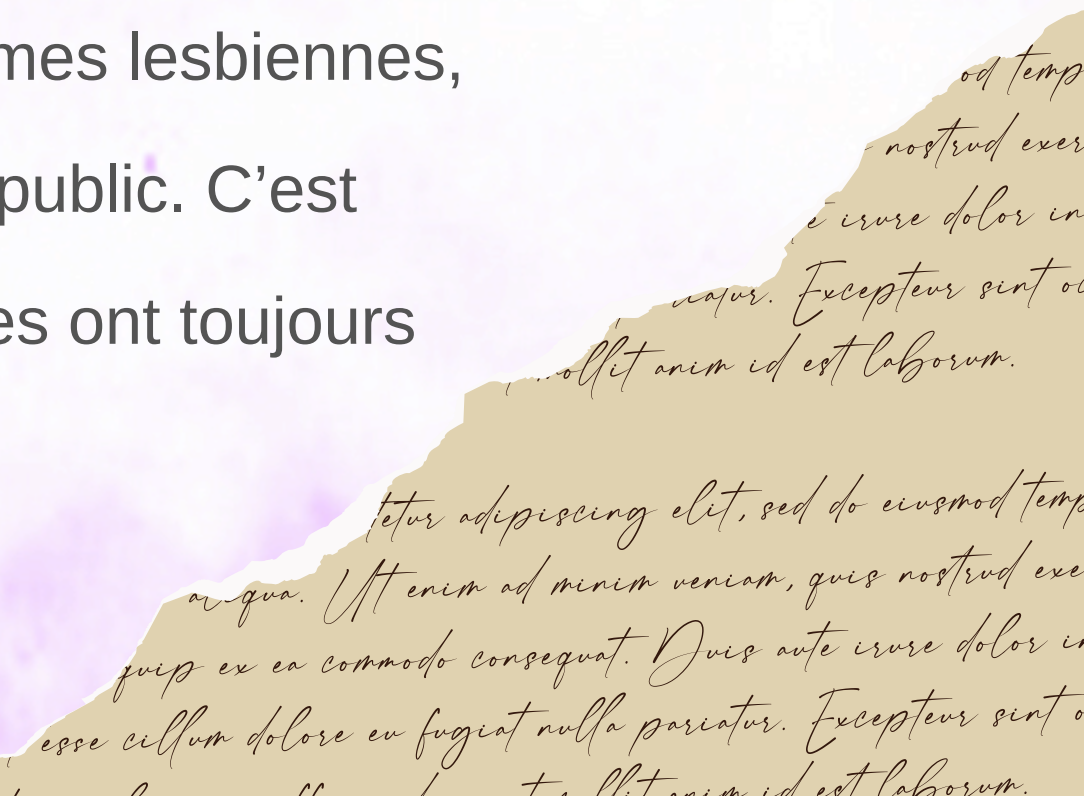 mes lesbiennes,
public. C’est
es ont toujours
od temp
nostrud exer
e irure dolor in
iatur. Excepteur sint oc
mollit anim id est laborum.
tetur adipiscing elit, sed do eiusmod temp
aliqua. Ut enim ad minim veniam, quis nostrud exe
quip ex ea commodo consequat. Duis aute irure dolor in
esse cillum dolore eu fugiat nulla pariatur. Excepteur sint o
mollit anim id est laborum.